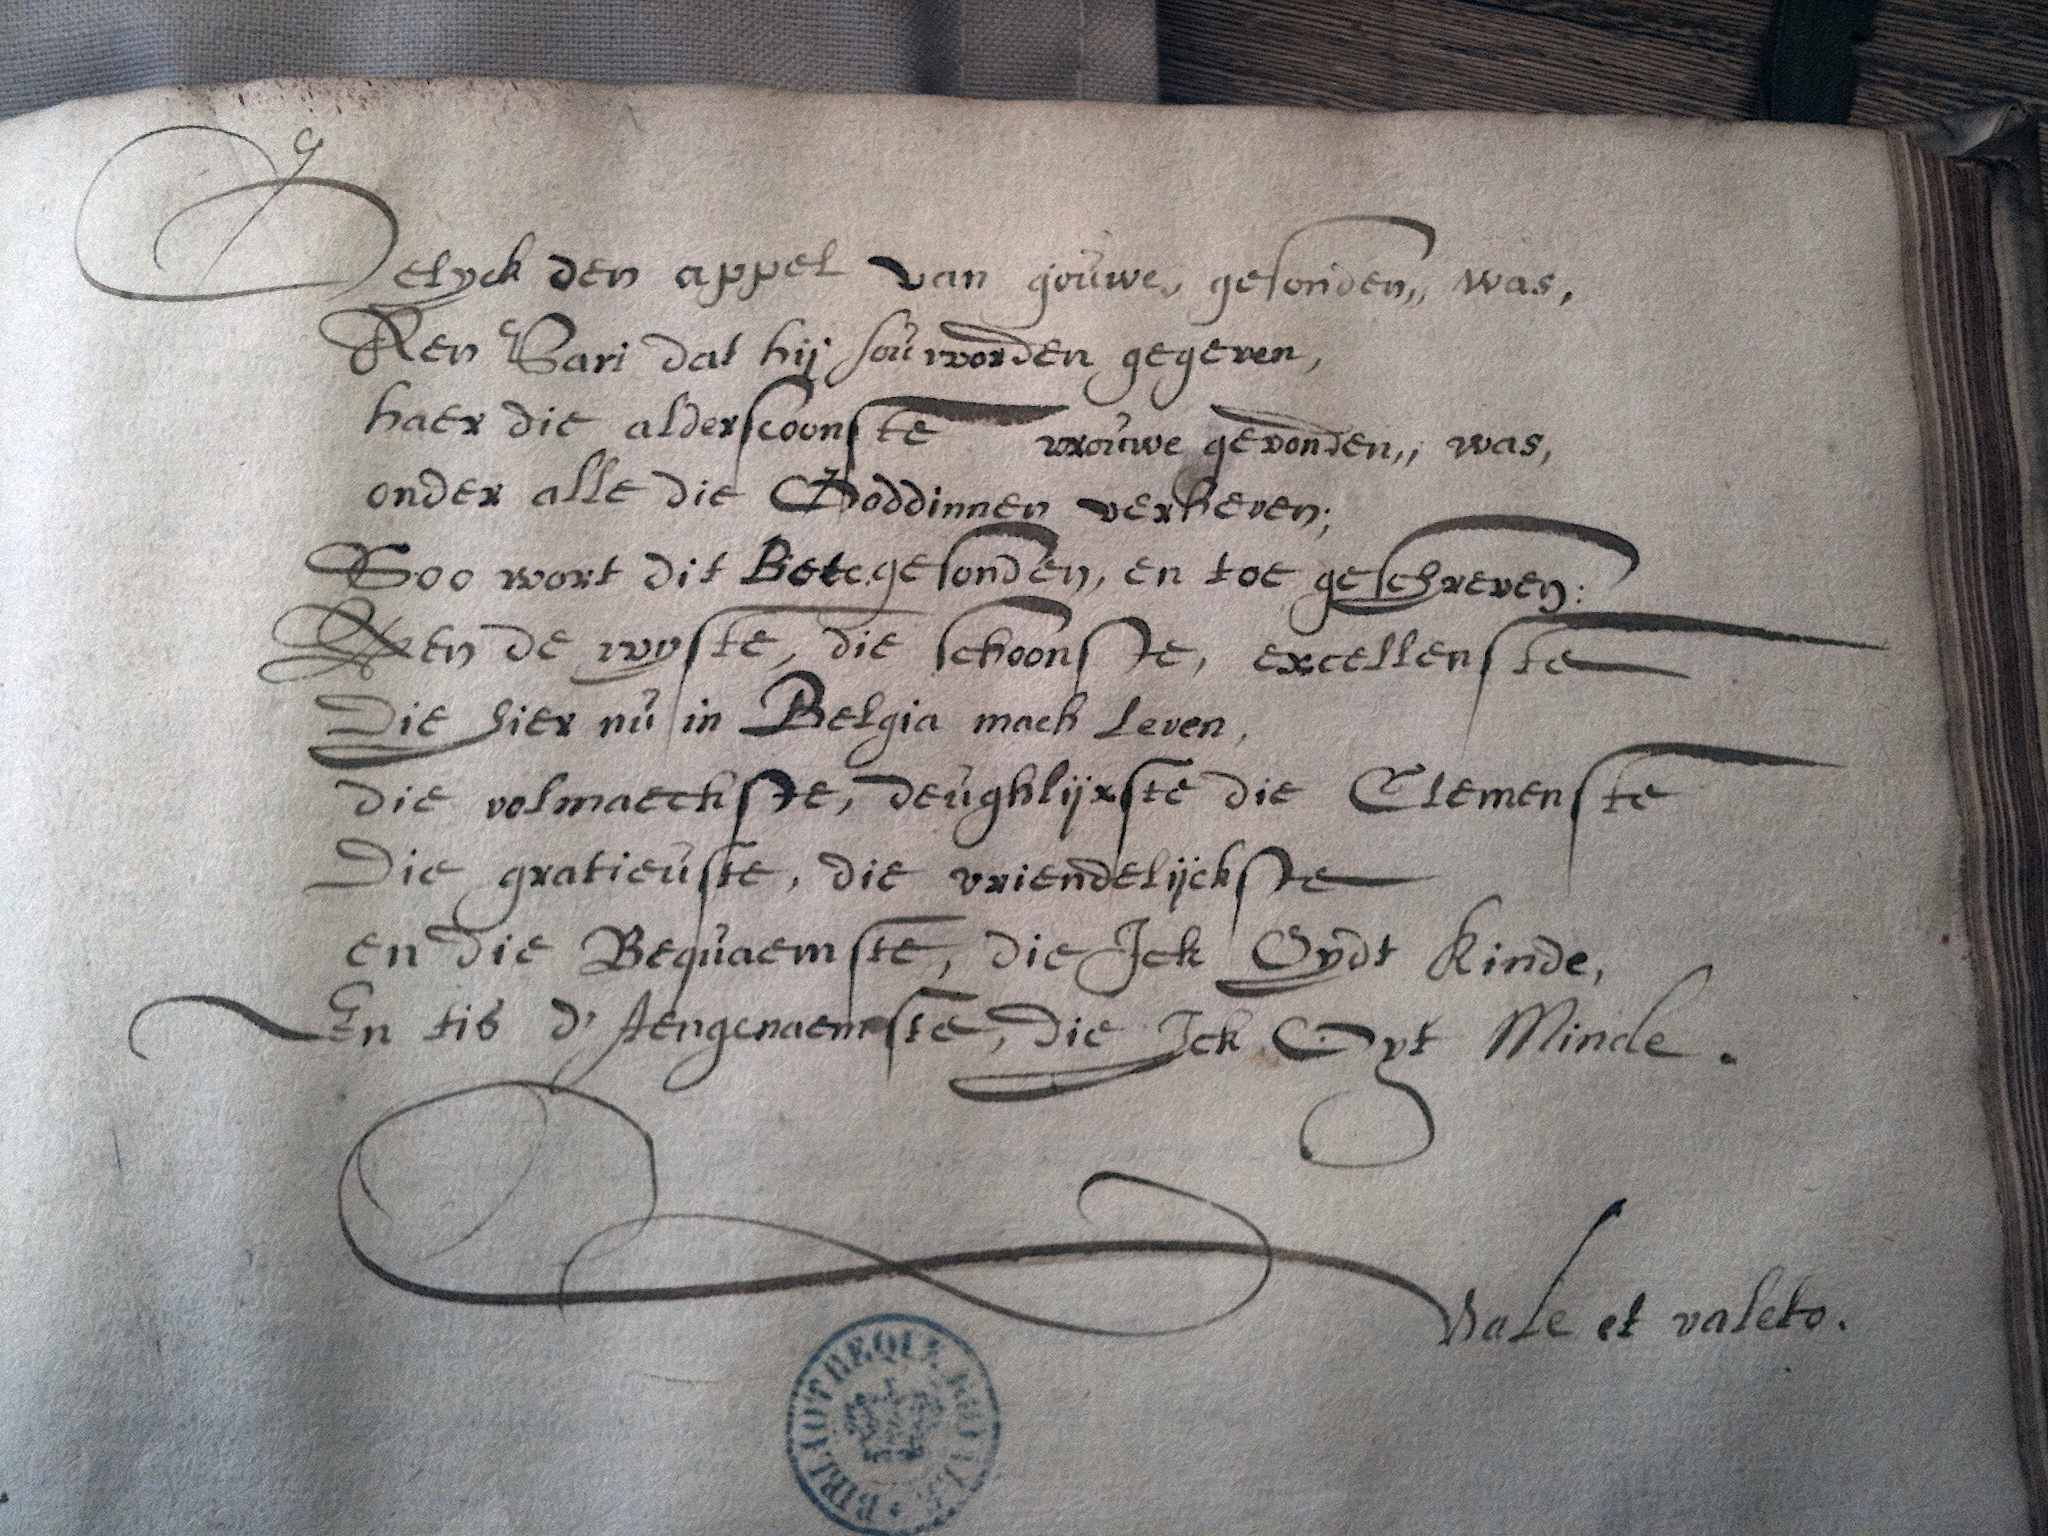 Gelyck den appel van goûwe,, gesonden,, was,
Aen Pari dat hij soû worden gegeven,
haer die alderscoonste vroûwe gevonden,, was,
onder alle die Goddinnen verheven;
Soo wort dit gesonden, en toe geschreven:
Aen de wyste, die schoonste, excellenste
Die hier nû in Belgia mach leven,
die volmaeckste, deûghlijxste die Clemenste
Die gratieûste, die vriendelijckste
en die Beqûaemste, die Ick Oydt kinde,
En tis d'Aengenaemste, die Ick Oyt Minde.
Vale et valeto.
BIBLIOTHEQUE ROYALE